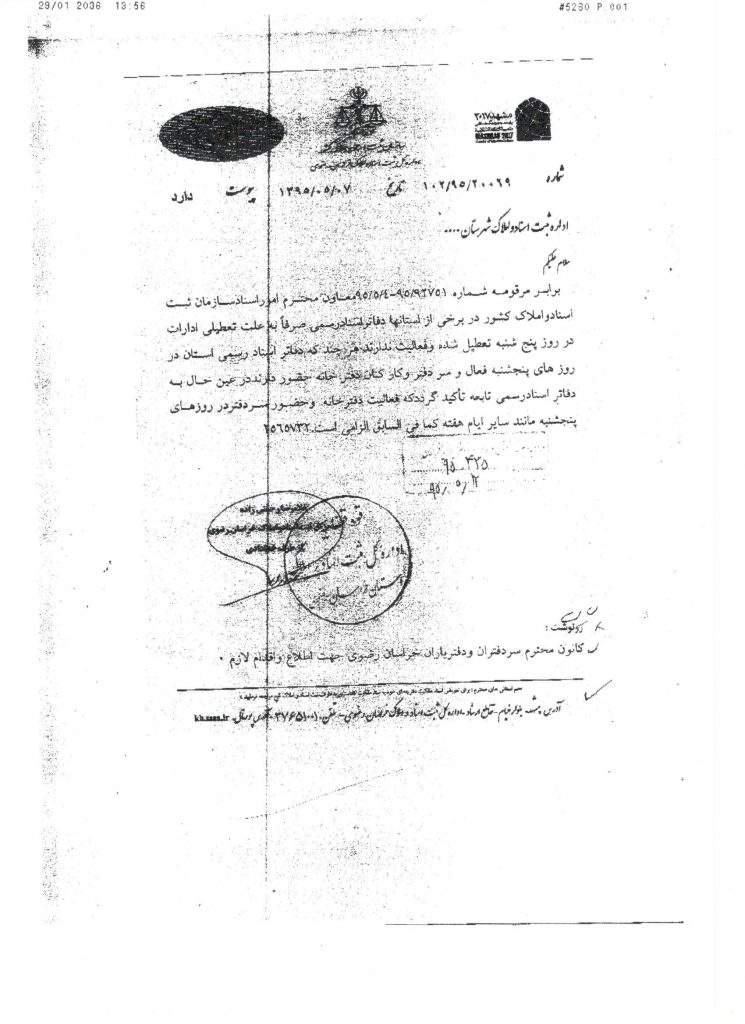 29/01 2036 13:56 #5280 P.001
مشهد ۲۰۱۷
MASHHAD 2017
شماره ۱۰۲/۹۵/۲۰۰۶۹ تاریخ ۱۳۹۵/۰۵/۰۷ پیوست دارد
اداره ثبت اسناد و املاک شهرستان ....
سلام علیکم
برابر مرقومه شماره ۹۵/۹۲۷۵۱-۹۵/۵/۴ معاون محترم امور اسناد سازمان ثبت
اسناد و املاک کشور در برخی از استانها دفاتر اسناد رسمی صرفاً به علت تعطیلی ادارات
در روز پنج شنبه تعطیل شده و فعالیت ندارند هر چند که دفاتر اسناد رسمی استان در
روز های پنجشنبه فعال و سر دفتر و کارکنان دفتر خانه حضور دارند در عین حال به
دفاتر اسناد رسمی تابعه تأکید گردد که فعالیت دفترخانه و حضور سردفتر در روزهای
پنجشنبه مانند سایر ایام هفته کما فی السابق الزامی است. ۲۵۶۵۷۳۲
۹۵ ۴۳۵
۹۵/۵/۱۲
قوه ق
اداره کل ثبت اسناد
استان خراسان رضوی
رونوشت :
کانون محترم سردفتران و دفتریاران خراسان رضوی جهت اطلاع و اقدام لازم .
آدرس: مشهد- بلوار خیام- تقاطع ارشاد- اداره کل ثبت اسناد و املاک خراسان رضوی- تلفن: ۳۷۶۵۱۰۰۱- آدرس پورتال: